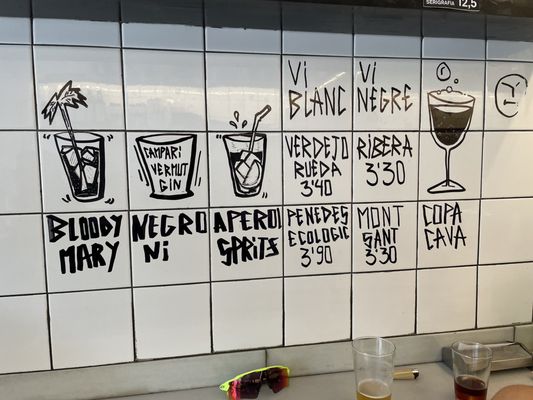 SERIGRAFIA 12,5
VI
BLANC
VI
NEGRE
CAMPARI
VERMUT
GIN
VERDEJO
RUEDA
3'40
RIBERA
3'30
BLOODY
MARY
NEGRO
NI
APEROL
SPRITS
PENEDES
ECOLOGIC
3'90
MONT
SANT
3'30
COPA
CAVA